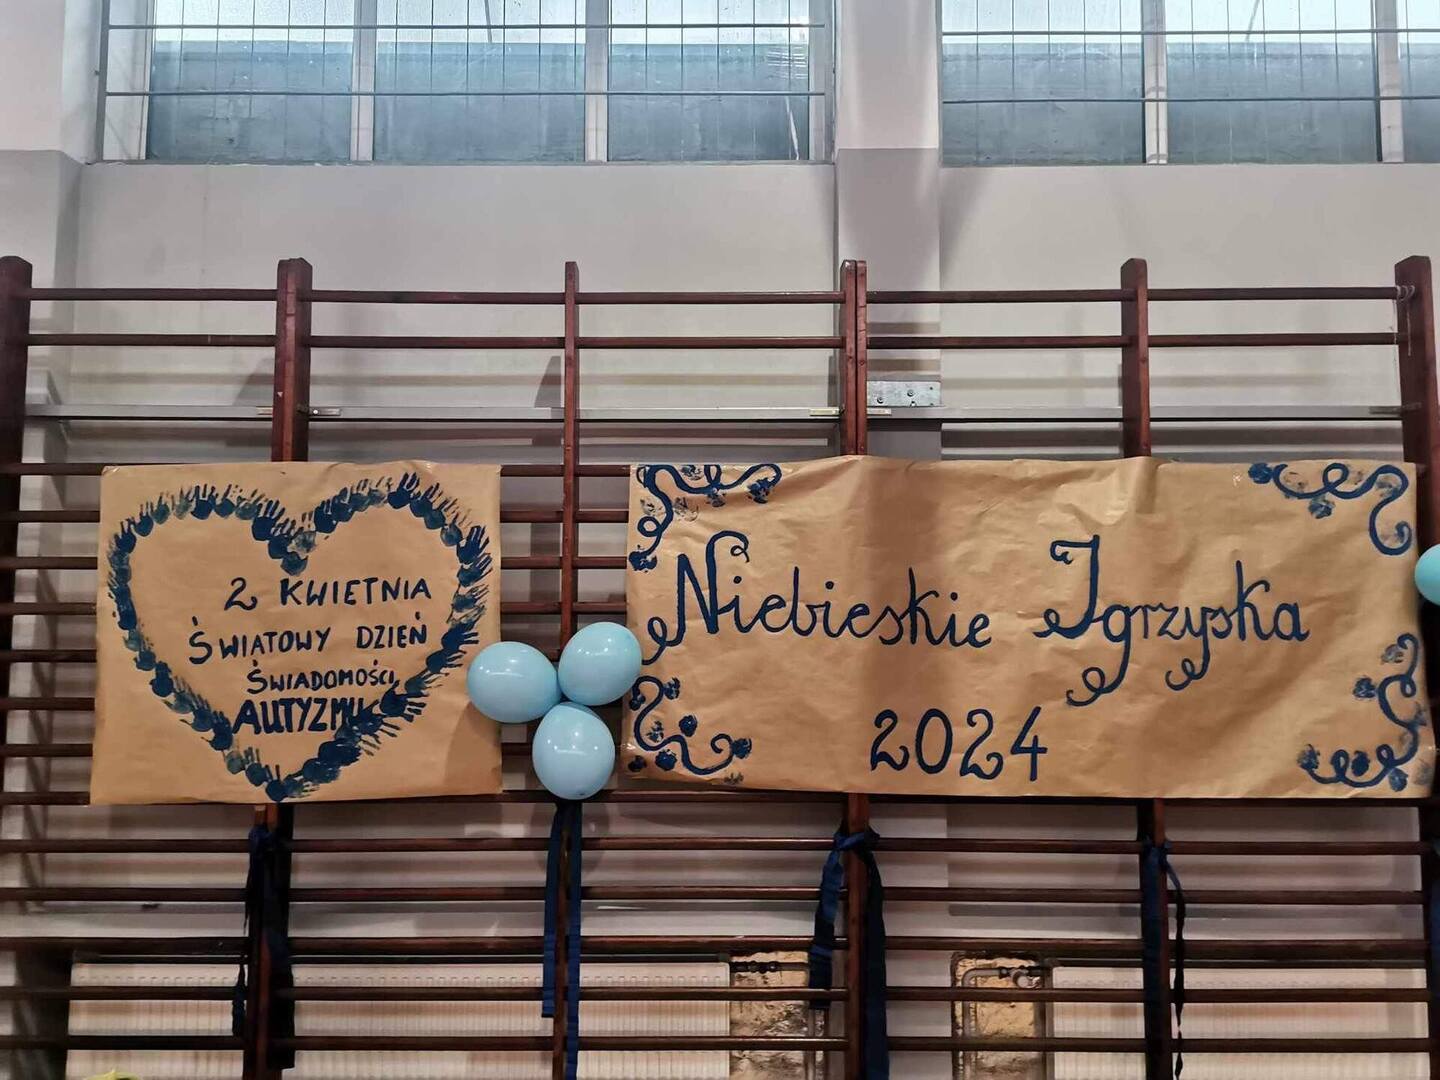 2 KWIETNIA
ŚWIATOWY DZIEŃ
ŚWIADOMOŚCI
AUTYZMU
Niebieskie Igrzyska
2024